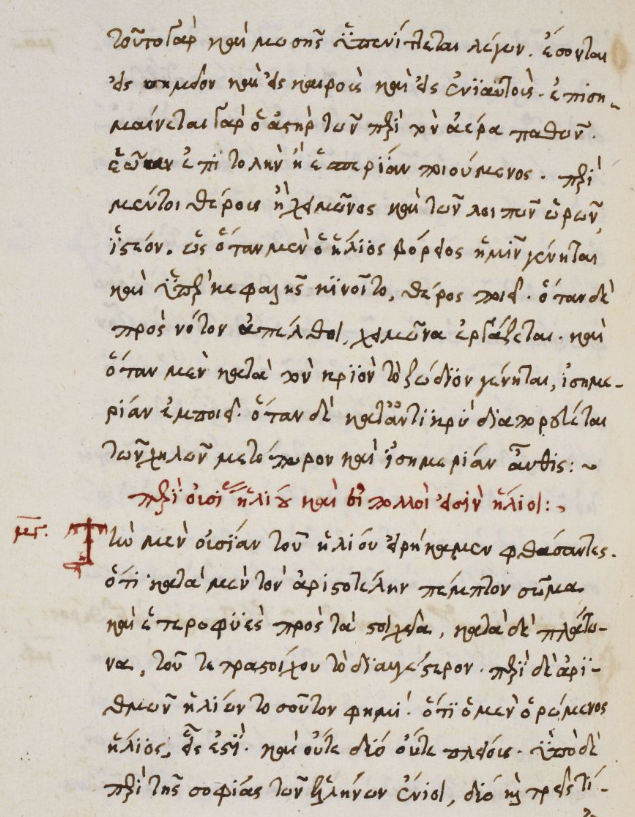 τοῦτο γὰρ καὶ μωσῆς ὑπενίττεται λέγων. ἔσονται
εἰς σημεῖον καὶ εἰς καιροὺς καὶ εἰς ἐνϊαυτούς. ἐπιση-
μαίνεται γὰρ ὁ ἀστὴρ τῶν περὶ τὸν ἀέρα παθῶν.
ἑῴαν ἐπιτολὴν ἢ ἑσπερίαν ποιούμενος. περὶ
μέντοι θέρους ἢ χειμῶνος καὶ τῶν λοιπῶν ὡρῶν,
ἰστέον. ὡς ὅταν μὲν ὁ ἥλιος βόρειος ἡμῖν γένηται
καὶ ὑπὲρ κεφαλῆς κινοῖτο, θέρος ποιεῖ. ὅταν δὲ
πρὸς νότον ἀπέλθοι, χειμῶνα ἐργάζεται. καὶ
ὅταν μὲν κατὰ τὸν κριὸν τὸ ζώδιον γένηται, ἰσημε-
ρίαν ἐμποιεῖ. ὅταν δὲ καταντικρὺ διαπορεύεται
τῶν χηλῶν μετόπωρον καὶ ἰσημερίαν αὖθις:~
περὶ οὐσίας ἡλίου καὶ εἰ πολλοί εἰσιν ἥλιοι:~
Τὴν μὲν οὐσίαν τοῦ ἡλίου εἰρήκαμεν φθάσαντες.
ὅτι κατὰ μὲν τὸν ἀριστοτέλην πέμπτον σῶμα
καὶ ἑτεροφυὲς πρὸς τὰ στοιχεῖα, κατὰ δὲ πλάτω-
να, τοῦ τε πρὸς στοίχου τὸ διαυγέστερον. περὶ δὲ ἀρι-
θμῶν ἡλίων τοσοῦτον φημί. ὅτι ὁ μὲν ὁρώμενος
ἥλιος, εἷς ἐστί. καὶ οὔτε δύο οὔτε πλείους. ὑπὸ δὲ
περὶ τῆς σοφίας τῶν ἑλλήνων ἔνιοι, δύο καὶ τρεῖς τί-